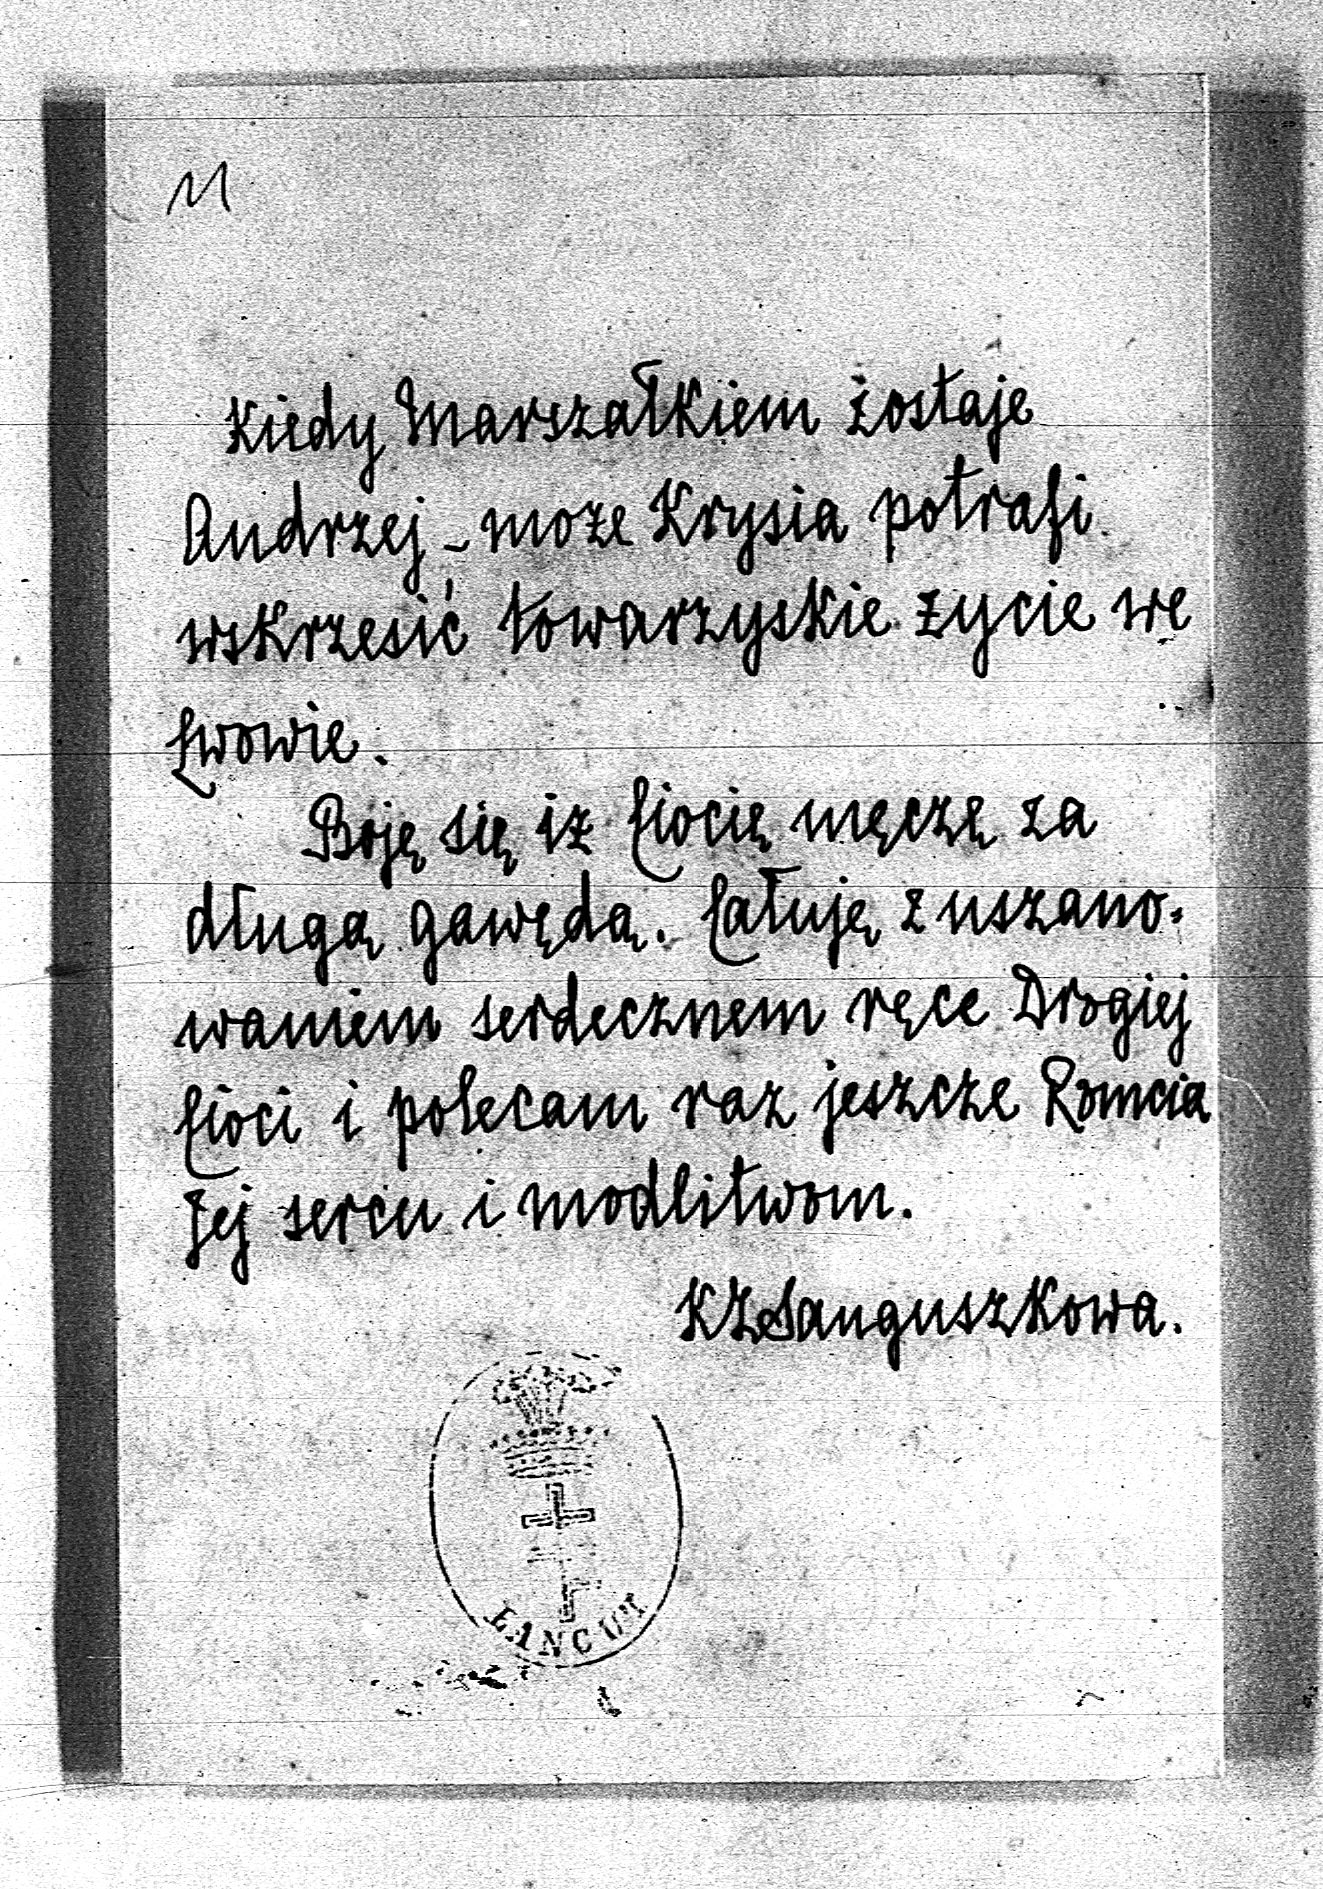 11
Kiedy Marszałkiem zostaje
Andrzej – może Krysia potrafi
wskrzesić towarzyskie życie we
Lwowie.
Boję się iż Ciocię męczę za
długą gawędą. Całuję z uszano-
waniem serdecznem ręce Drogiej
Cioci i polecam raz jeszcze Romcia
Jej sercu i modlitwom.
KZSanguszkowa.
ŁANCUT